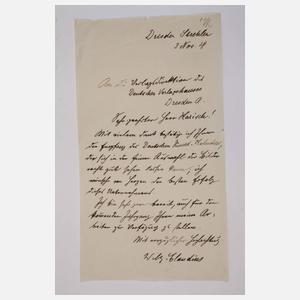 Dresden Strehlen
3 Nov 4
An die Verlagsdirektion des
Deutschen Verlagshauses
Dresden A.
Sehr geehrter Herr Harisch!
Mit vielem Dank bestätige ich Ihnen
den Empfang des Deutschen Kunst-Kalenders,
der sich in der feinen Auswahl der Bilder
recht gut sehen lassen kann; ich
wünsche von Herzen den besten Erfolg
dieses Unternehmens.
Ich bin sehr gern bereit, auch für den
kommenden Jahrgang Ihnen meine Ar-
beiten zur Verfügung zu stellen.
Mit vorzüglicher Hochachtung
Claudius